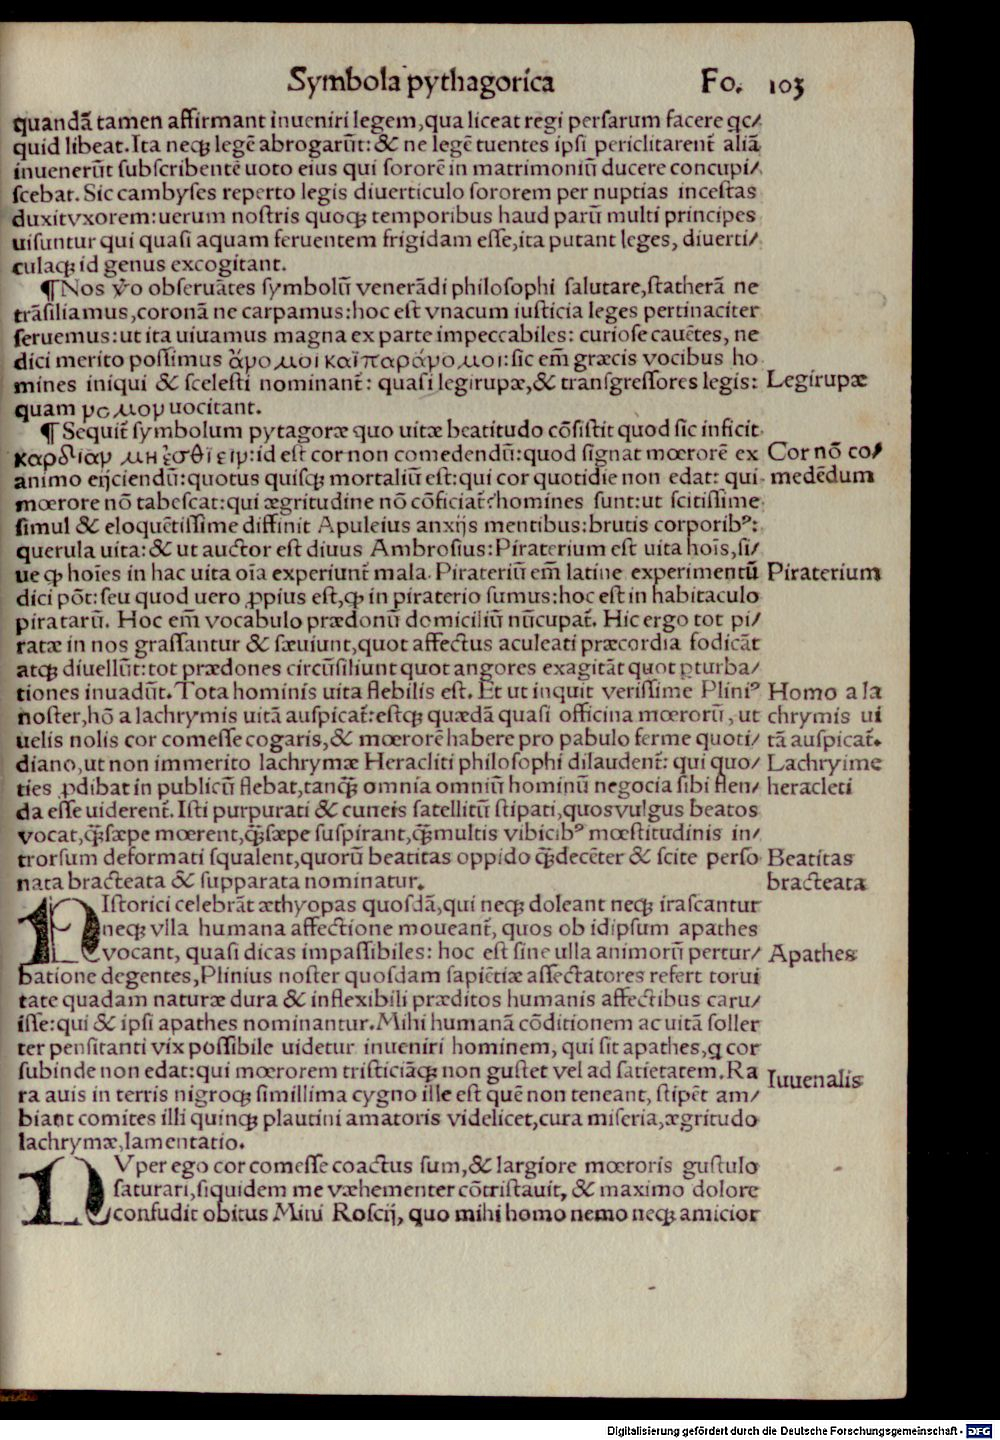 Symbola pythagorica Fo. 103
quandā tamen affirmant inueniri legem,qua liceat regi persarum facere qc⁄
quid libeat.Ita neqꝫ legē abrogarūt:& ne legē tuentes ipsi periclitarent᷑ aliā
inuenerūt subscribentē uoto eius qui sororē in matrimoniū ducere concupi⁄
scebat. Sic cambyses reperto legis diuerticulo sororem per nuptias incestas
duxit vxorem:uerum nostris quoqꝫ temporibus haud parū multi principes
uisuntur qui quasi aquam feruentem frigidam esse,ita putant leges, diuerti⁄
culaqꝫ id genus excogitant.
¶Nos v̊o obseruātes symbolū venerādi philosophi salutare,statherā ne
trāsiliamus,coronā ne carpamus:hoc est vnacum iusticia leges pertinaciter
seruemus:ut ita uiuamus magna ex parte impeccabiles: curiose cauētes, ne
dici merito possimus ἄνομοι καὶ παράνομοι:sic em̄ græcis vocibus ho
mines iniqui & scelesti nominant᷑: quasi legirupæ,& transgressores legis:
Legirupæ
quam νομον uocitant.
¶ Sequit᷑ symbolum pytagoræ quo uitæ beatitudo cōsistit quod sic inficit
καρδίαν μη ἐσθίειν:id est cor non comedendū:quod signat mœrorē ex
Cor nō co⁄
animo eijciendū:quotus quisqꝫ mortaliū est:qui cor quotidie non edat: qui
medēdum
mœrore nō tabescat:qui ægritudine nō cōficiat᷑?homines sunt:ut scitissime
simul & eloquētissime diffinit Apuleius anxijs mentibus:brutis corporibꝰ:
querula uita:& ut auctor est diuus Ambrosius:Piraterium est uita hoīs,si⁄
ue ꝙ hoīes in hac uita oīa experiunt᷑ mala. Pirateriū em̄ latine experimentū
Piraterium
dici pōt:seu quod uero ꝓpius est,ꝙ in piraterio sumus:hoc est in habitaculo
piratarū. Hoc em̄ vocabulo prædonū domiciliū nūcupat᷑. Hic ergo tot pi⁄
ratæ in nos grassantur & sæuiunt,quot affectus aculeati præcordia fodicāt
atqꝫ diuellūt:tot prædones circūsiliunt quot angores exagitāt quot ꝑturba⁄
tiones inuadūt.Tota hominis uita flebilis est. Et ut inquit verissime Pliniꝰ
Homo a la
noster,hō a lachrymis uitā auspicat᷑:estqꝫ quædā quasi officina mœrorū, ut
chrymis ui
uelis nolis cor comesse cogaris,& mœrorē habere pro pabulo ferme quoti⁄
tā auspicat᷑.
diano,ut non immerito lachrymæ Heracliti philosophi dilaudent᷑: qui quo⁄
Lachryime
ties ꝓdibat in publicū flebat,tanqꝫ̄ omnia omniū hominū negocia sibi flen⁄
heracleti
da esse uiderent᷑. Isti purpurati & cuneis satellitū stipati,quos vulgus beatos
vocat,qꝫ̄ sæpe mœrent,qꝫ̄ sæpe suspirant,qꝫ̄ multis vibicibꝰ mœstitudinis in⁄
trorsum deformati squalent,quorū beatitas oppido qꝫ̄ decēter & scite perso
Beatitas
nata bracteata & supparata nominatur.
bracteata
HIstorici celebrāt æthyopas quosdā,qui neqꝫ doleant neqꝫ irascantur
neqꝫ vlla humana affectione moueant᷑, quos ob idipsum apathes
vocant, quasi dicas impassibiles: hoc est sine ulla animorū pertur⁄
Apathes
batione degentes,Plinius noster quosdam sapiētiæ assectatores refert torui
tate quadam naturæ dura & inflexibili præditos humanis affectibus caru⁄
isse:qui & ipsi apathes nominantur.Mihi humanā cōditionem ac uitā soller
ter pensitanti vix possibile uidetur inueniri hominem, qui sit apathes,q cor
subinde non edat:qui mœrorem tristiciāqꝫ non gustet vel ad satietatem.Ra
Iuuenalis
ra auis in terris nigroqꝫ simillima cygno ille est quē non teneant, stipēt am⁄
biant comites illi quinqꝫ plautini amatoris videlicet,cura miseria,ægritudo
lachrymæ,lamentatio.
NVper ego cor comesse coactus sum,& largiore mœroris gustulo
saturari,siquidem me væhementer cōtristauit, & maximo dolore
confudit obitus Mini Roscij, quo mihi homo nemo neqꝫ amicior
Digitalisierung gefördert durch die Deutsche Forschungsgemeinschaft - DFG